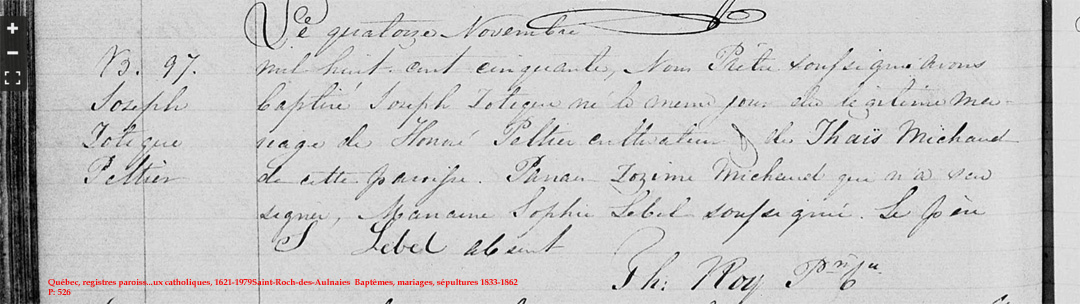 Le quatorze Novembre
B. 97.
Joseph
Zotique
Peltier
mil huit cent cinquante, Nous Prêtre soussigné avons
baptisé Joseph Zotique né le même jour du légitime ma-
riage de Honoré Peltier cultivateur & de Thaïs Michaud
de cette paroisse. Parain Zozime Michaud qui n'a seu
signer, Maraine Sophie Lebel soussignée. Le père
absent
S Lebel
Th: Roy Ptre
Québec, registres paroiss...ux catholiques, 1621-1979Saint-Roch-des-Aulnaies Baptêmes, mariages, sépultures 1833-1862
P: 526